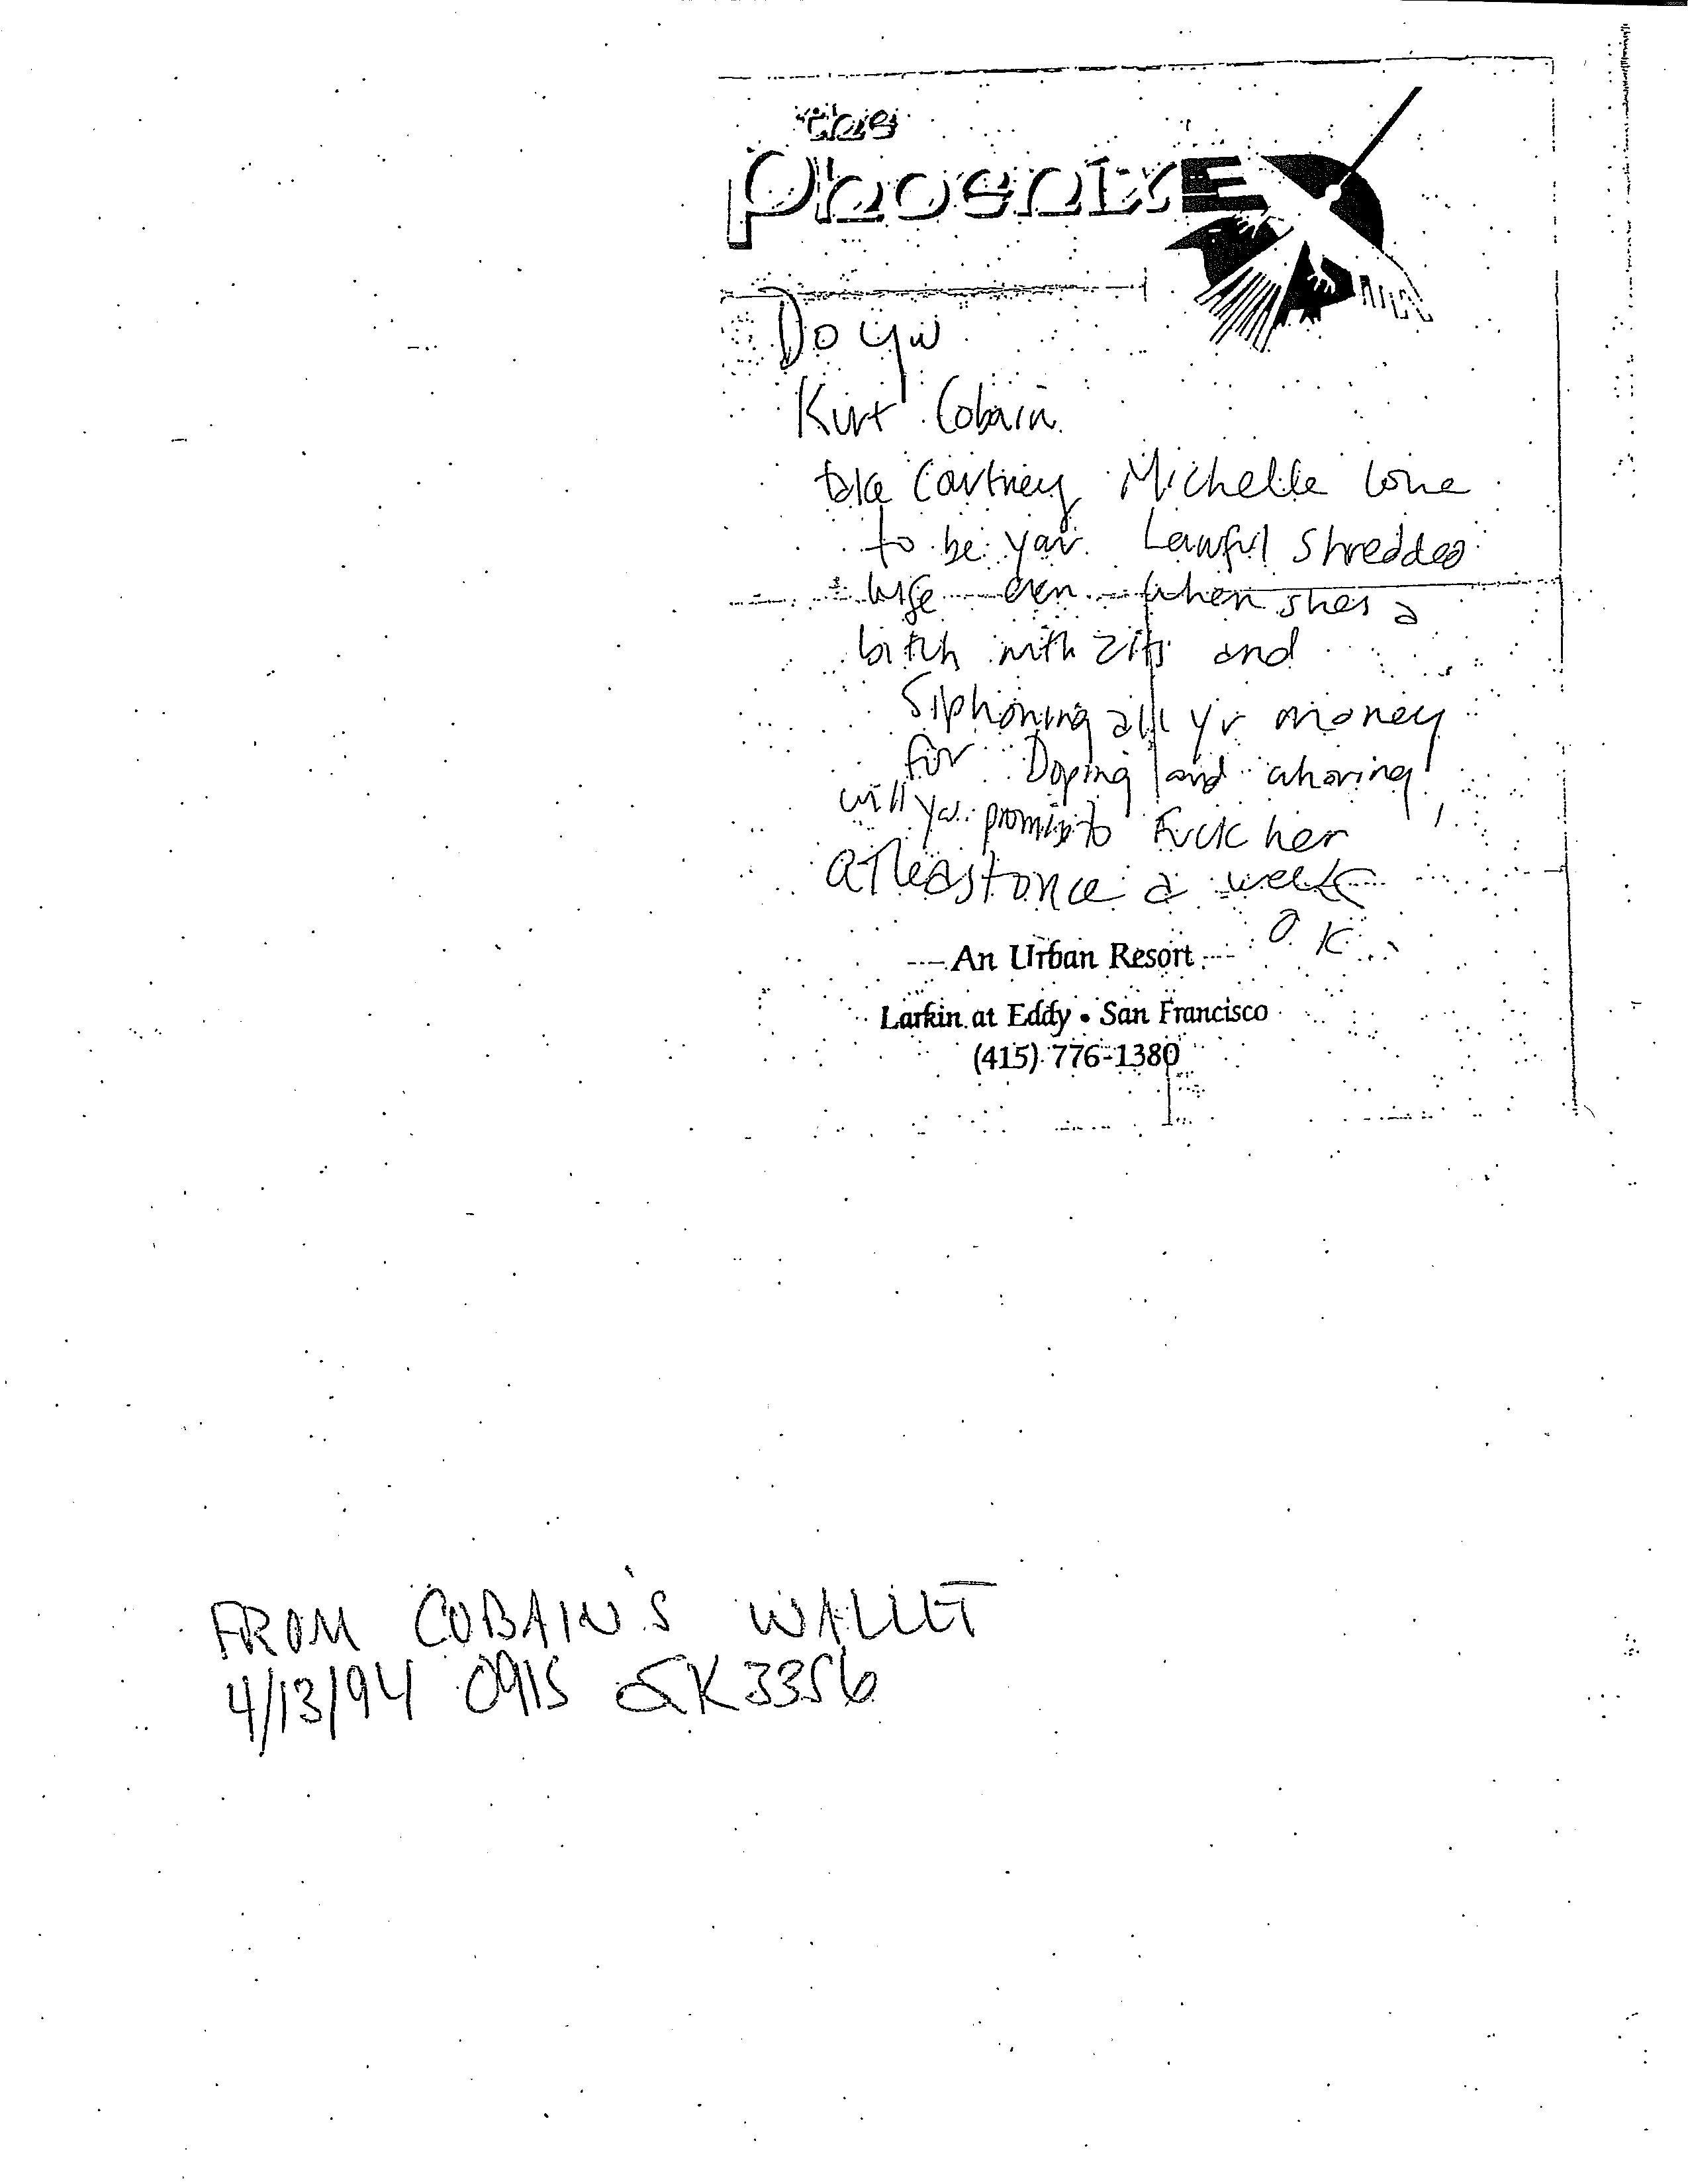 the
Phoenix
Do you
Kurt Cobain
take Courtney Michelle Love
to be your Lawful shredded
wife even when shes a
bitch with zits and
siphoning all yr money
for Doping and whoring
will you promise to Fuck her
atleast once a week
O.K.
An Urban Resort
Larkin at Eddy • San Francisco
(415) 776-1380
FROM COBAIN'S WALLET
4/13/94 0915 SK3356